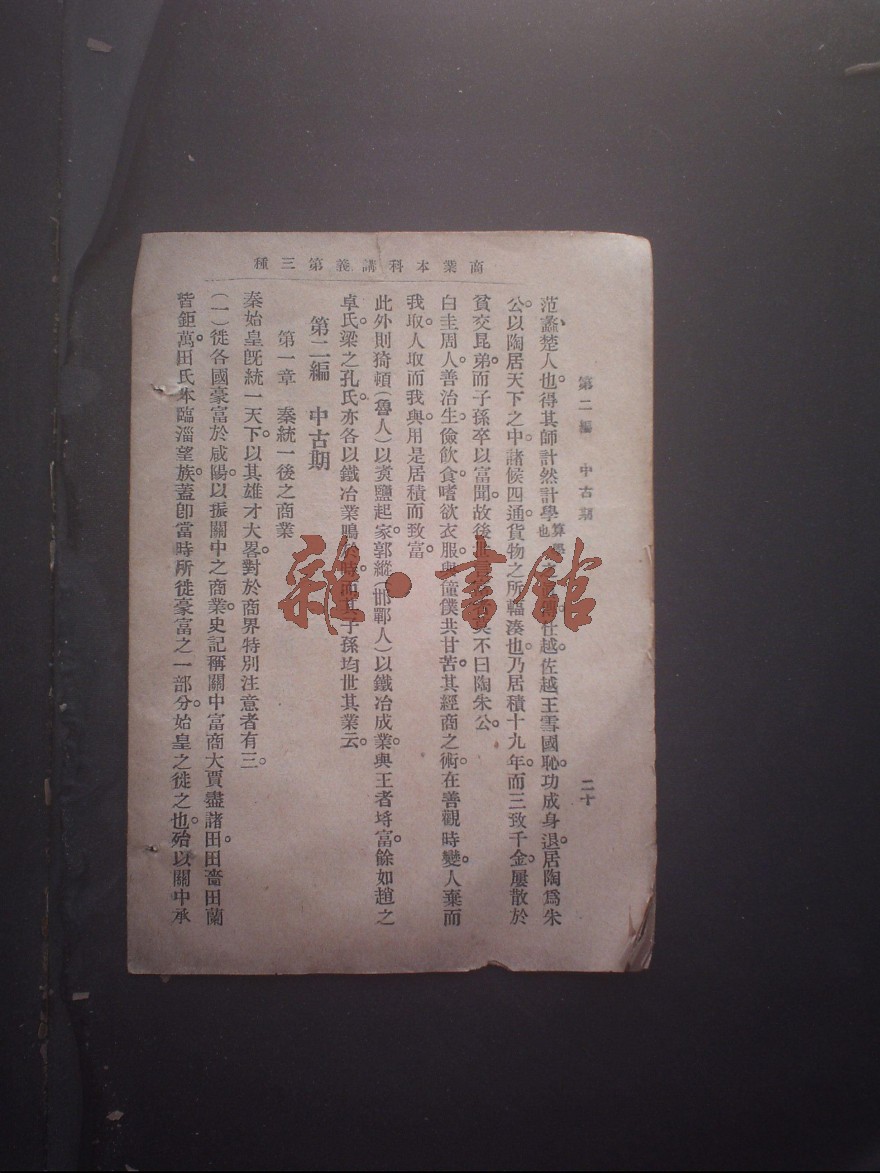 商業本科講義第三種
第二編 中古期 二十
范蠡楚人也。得其師計然計學算學也之仕越。佐越王雪國恥。功成身退。居陶爲朱
公。以陶居天下之中。諸候四通。貨物之所輻湊也。乃居積十九年。而三致千金。屢散於
貧交昆弟。而子孫卒以富聞。故後不曰陶朱公。
白圭周人。善治生。儉飲食。嗜欲衣服。與僮僕共甘苦。其經商之術。在善觀時變。人棄而
我取。人取而我與。用是居積而致富。
此外則猗頓(魯人)以煑鹽起家。郭縱(邯鄲人)以鐵冶成業。與王者埓富。餘如趙之
卓氏。梁之孔氏。亦各以鐵冶業鳴於時。而其子孫均世其業云。
第二編 中古期
第一章 秦統一後之商業
秦始皇旣統一天下。以其雄才大畧。對於商界特別注意者有三。
(一)徙各國豪富於咸陽。以振關中之商業。史記稱關中富商大賈。盡諸田。田嗇田蘭
皆鉅萬。田氏本臨淄望族。蓋卽當時所徙豪富之一部分。始皇之徙之也。殆以關中承
雜·書館